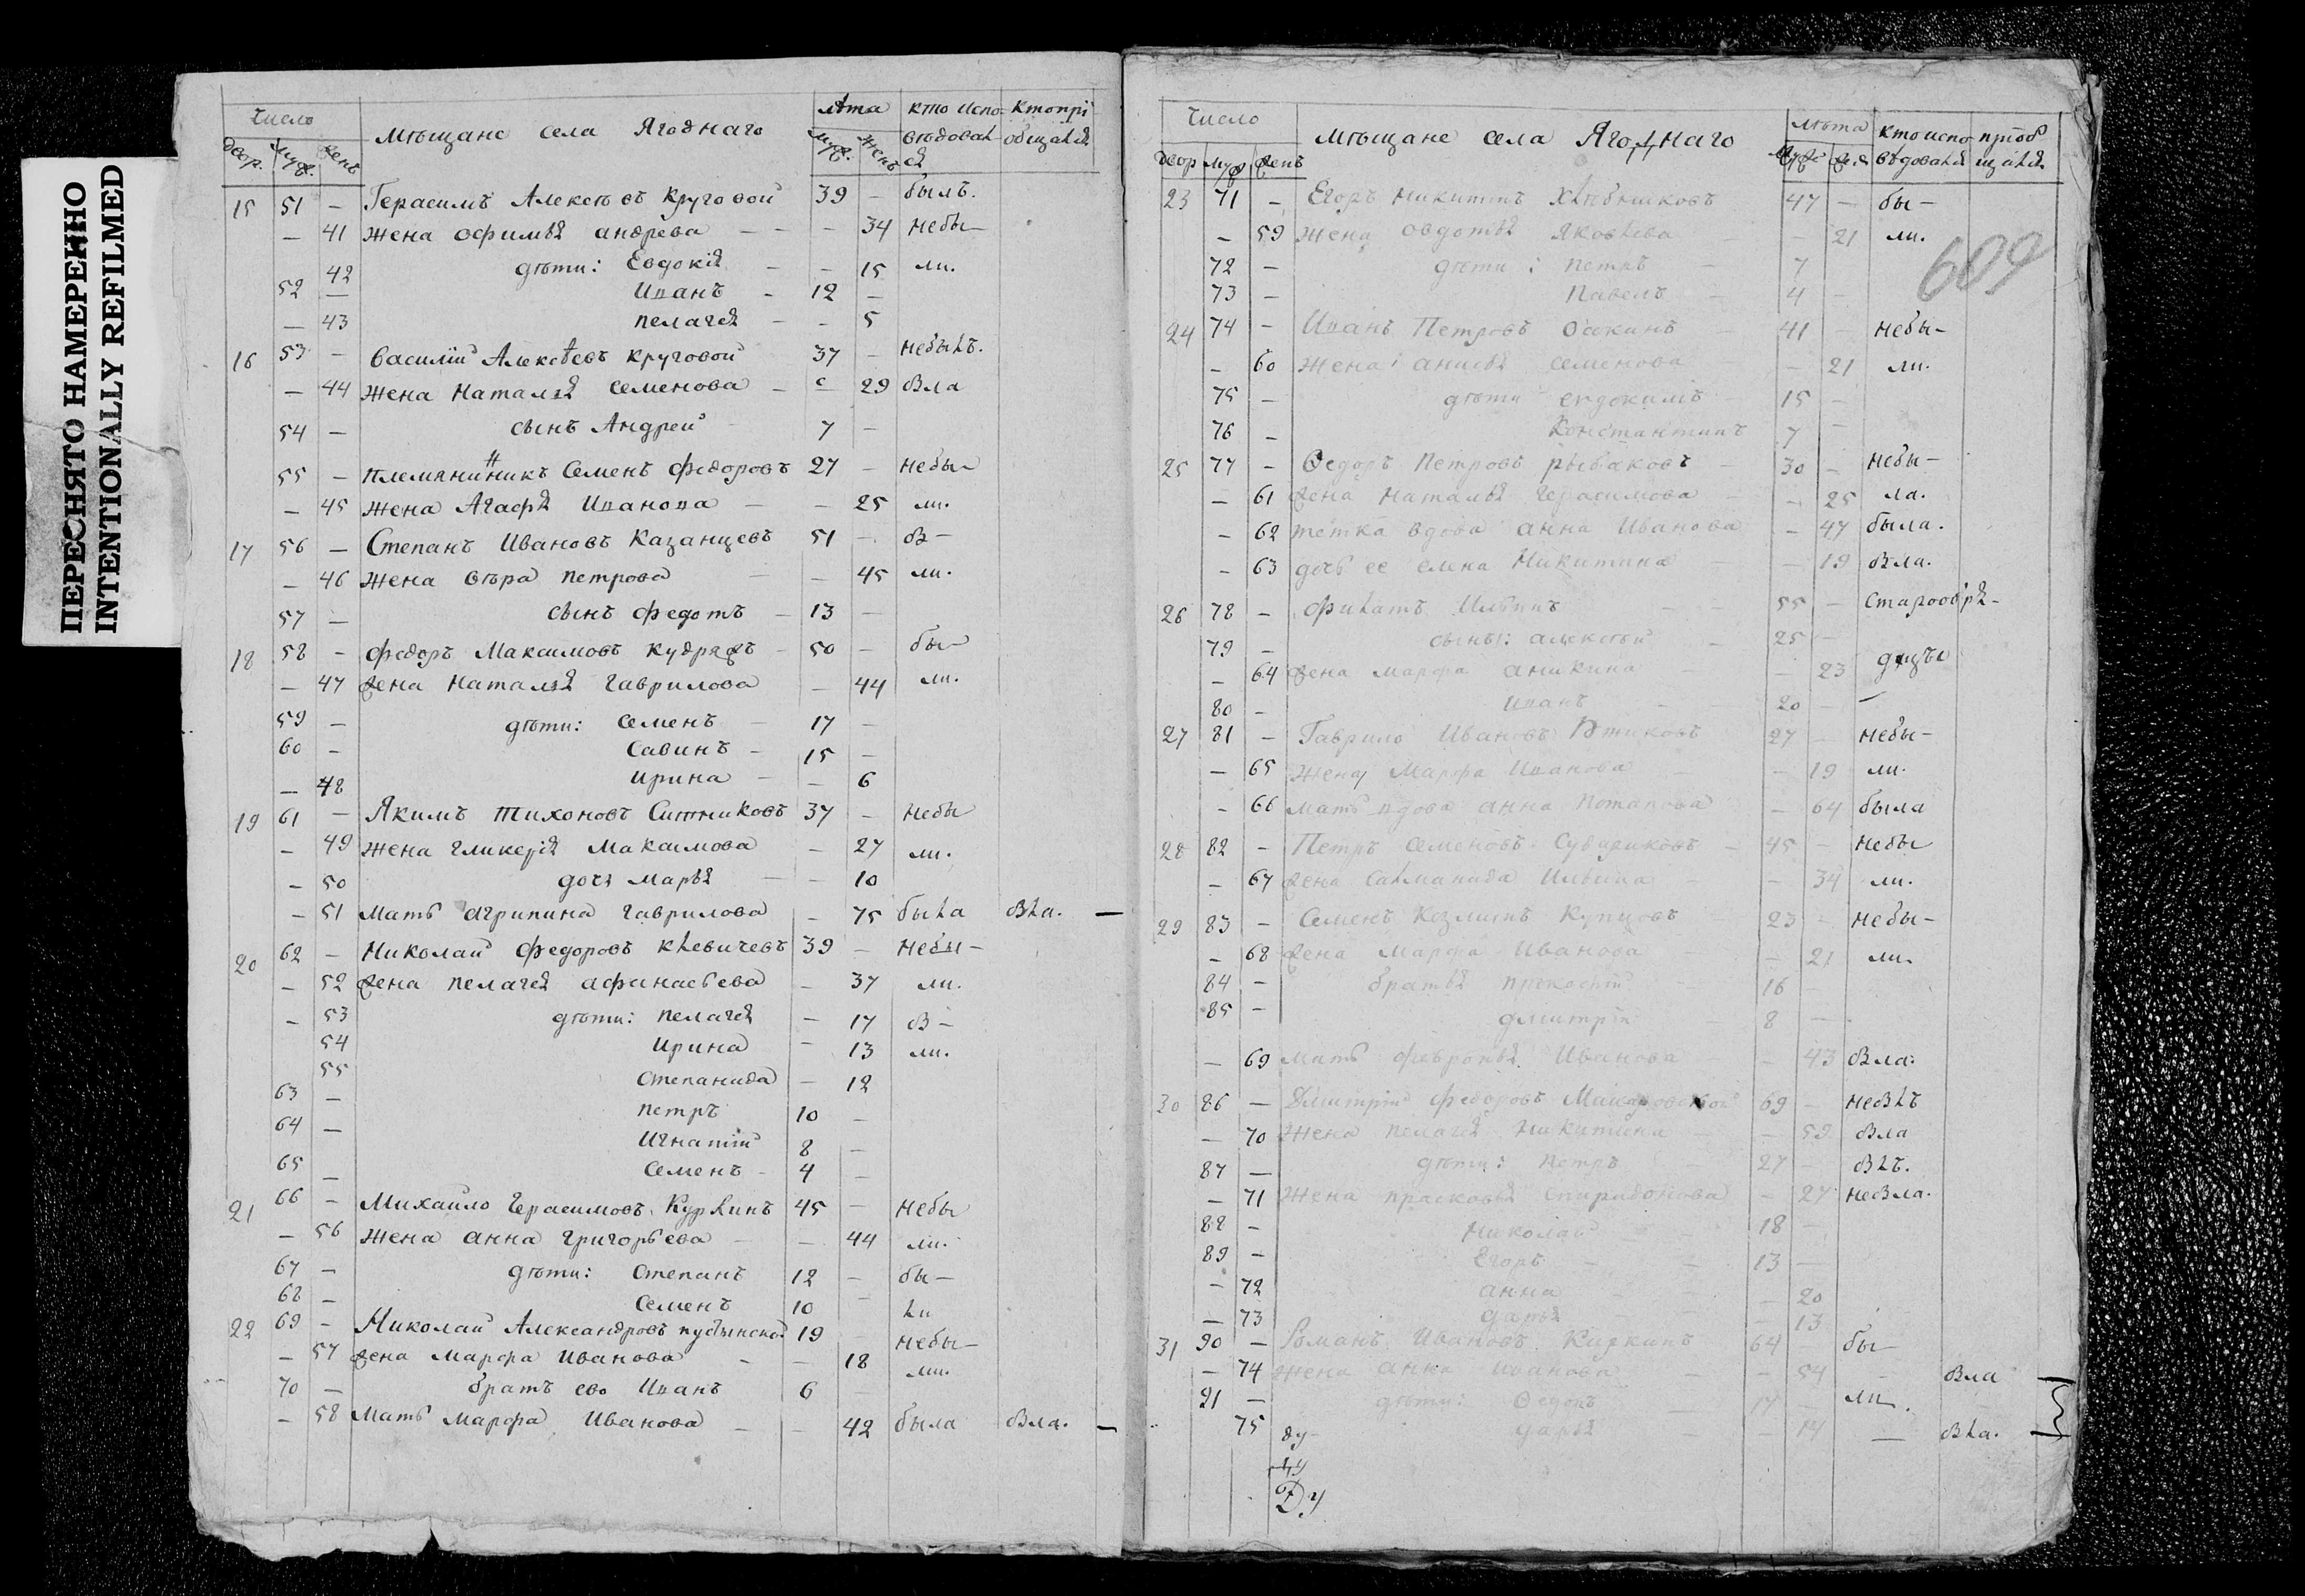 ПЕРЕСНЯТО НАМЕРЕННО
INTENTIONALLY REFILMED
Число Мѣщане села Ягоднаго лѣта кто испо- кто прі
двор. муж. жен. муж. женъ вѣдовал общался
ся
15 51 — Герасимъ Алексѣевъ Круговой 39 — былъ.
— 41 жена Офимья андрева — — — 34 небы—
42 дѣти: Евдокія — — 15 ли.
52 — Иванъ — 12 —
— 43 пелагея — — 5
16 53 — Василій Алексѣевъ круговой 37 — небылъ.
— 44 жена Наталья семенова — — 29 Была
54 — сынъ Андрей 7 —
55 — племянинникъ Семенъ федоровъ 27 — небы—
— 45 жена Агафья Иванова — — 25 ли.
17 56 — Степанъ Ивановъ Казанцевъ 51 — бы—
— 46 жена вѣра петрова — — 45 ли.
57 — сынъ федотъ — 13 —
18 58 — федоръ Максимовъ кудряфъ — 50 — бы—
— 47 жена Наталья гаврилова — 44 ли.
59 — дѣти: семенъ — 17 —
60 — Савинъ — 15 —
— 48 ирина — — 6
19 61 — Якимъ тихоновъ Ситниковъ 37 — небы
— 49 жена гликерія Максимова — 27 ли.
— 50 дочь марья — — 10
— 51 Мать агрипина гаврилова — 75 была Была. —
20 62 — Николай федоровъ клевичевъ 39 — небы—
— 52 жена пелагея афанасьева — 37 ли.
— 53 дѣти: пелагея — 17 бы—
54 ирина — 13 ли.
55 степанида — 12
63 — петръ 10 —
64 — игнатій 8 —
65 — семенъ — 4 —
21 66 — Михайло герасимовъ Курлинъ 45 — небы
— 56 жена анна григорьева — — 44 ли.
67 — дѣти: степанъ 12 — бы—
68 — семенъ 10 — ли
22 69 — Николай Александровъ пустынской 19 — небы—
— 57 жена марфа иванова — — 18 ли.
70 — братъ ево Иванъ 6 —
— 58 Мать марфа Иванова — — 42 была Была. —
Число Мѣщане села Ягоднаго лѣта кто испо приоб
двор муж женъ муж жен вѣдовался щался
609
23 71 — Егоръ никитинъ хлѣбниковъ 47 — бы—
— 59 жена овдотья яковлева 21 ли.
72 — дѣти: петръ — 7
73 — павелъ — 4 —
24 74 — Иванъ Петровъ осокинъ — 41 — небы—
— 60 жена анисья семенова — — 21 ли.
75 — дѣти евдокимъ — 15 —
76 — Константинъ 7 —
25 77 — Федоръ петровъ рыбаковъ — 30 — небы—
— 61 жена наталья герасимова — — 25 ла.
— 62 тетка вдова анна Иванова — 47 была.
— 63 дочь ее елена Никитина — 19 Была.
26 78 — филатъ Ильинъ — — 55 — старообря—
79 — сынъ: алексѣй — 25 —
— 64 жена марфа аникина — — 23 дцы
80 — иванъ — 20 — —
27 81 — Гаврило Ивановъ 27 — небы—
— 65 жена марфа Иванова — — 19 ли.
— 66 мать вдова анна потапова — 64 была
28 82 — Петръ семеновъ — 45 — небы
— 67 жена саломанида Ильина — 34 ли.
29 83 — Семенъ козминъ Купцовъ 23 — небы—
— 68 жена марфа Иванова — 21 ли.
84 — братья 16 —
85 — дмитрій — 8 —
— 69 мать февронья Иванова — — 43 Была.
30 86 — Дмитрій федоровъ 69 — небылъ
— 70 жена пелагея никитина — — 59 Была
87 — дѣти: петръ 27 — Былъ.
— 71 жена прасковья спиридонова — 27 небыла.
88 — николай 18 —
89 — Егоръ — 13 —
— 72 анна — 20
— 73 дарья — 13
31 90 — Романъ Ивановъ Киркинъ 64 — бы—
— 74 жена анна иванова — — 54 Была —
91 — дѣти: 17 — ли.
75 дарья — 14 — Была. —
ду
Ду